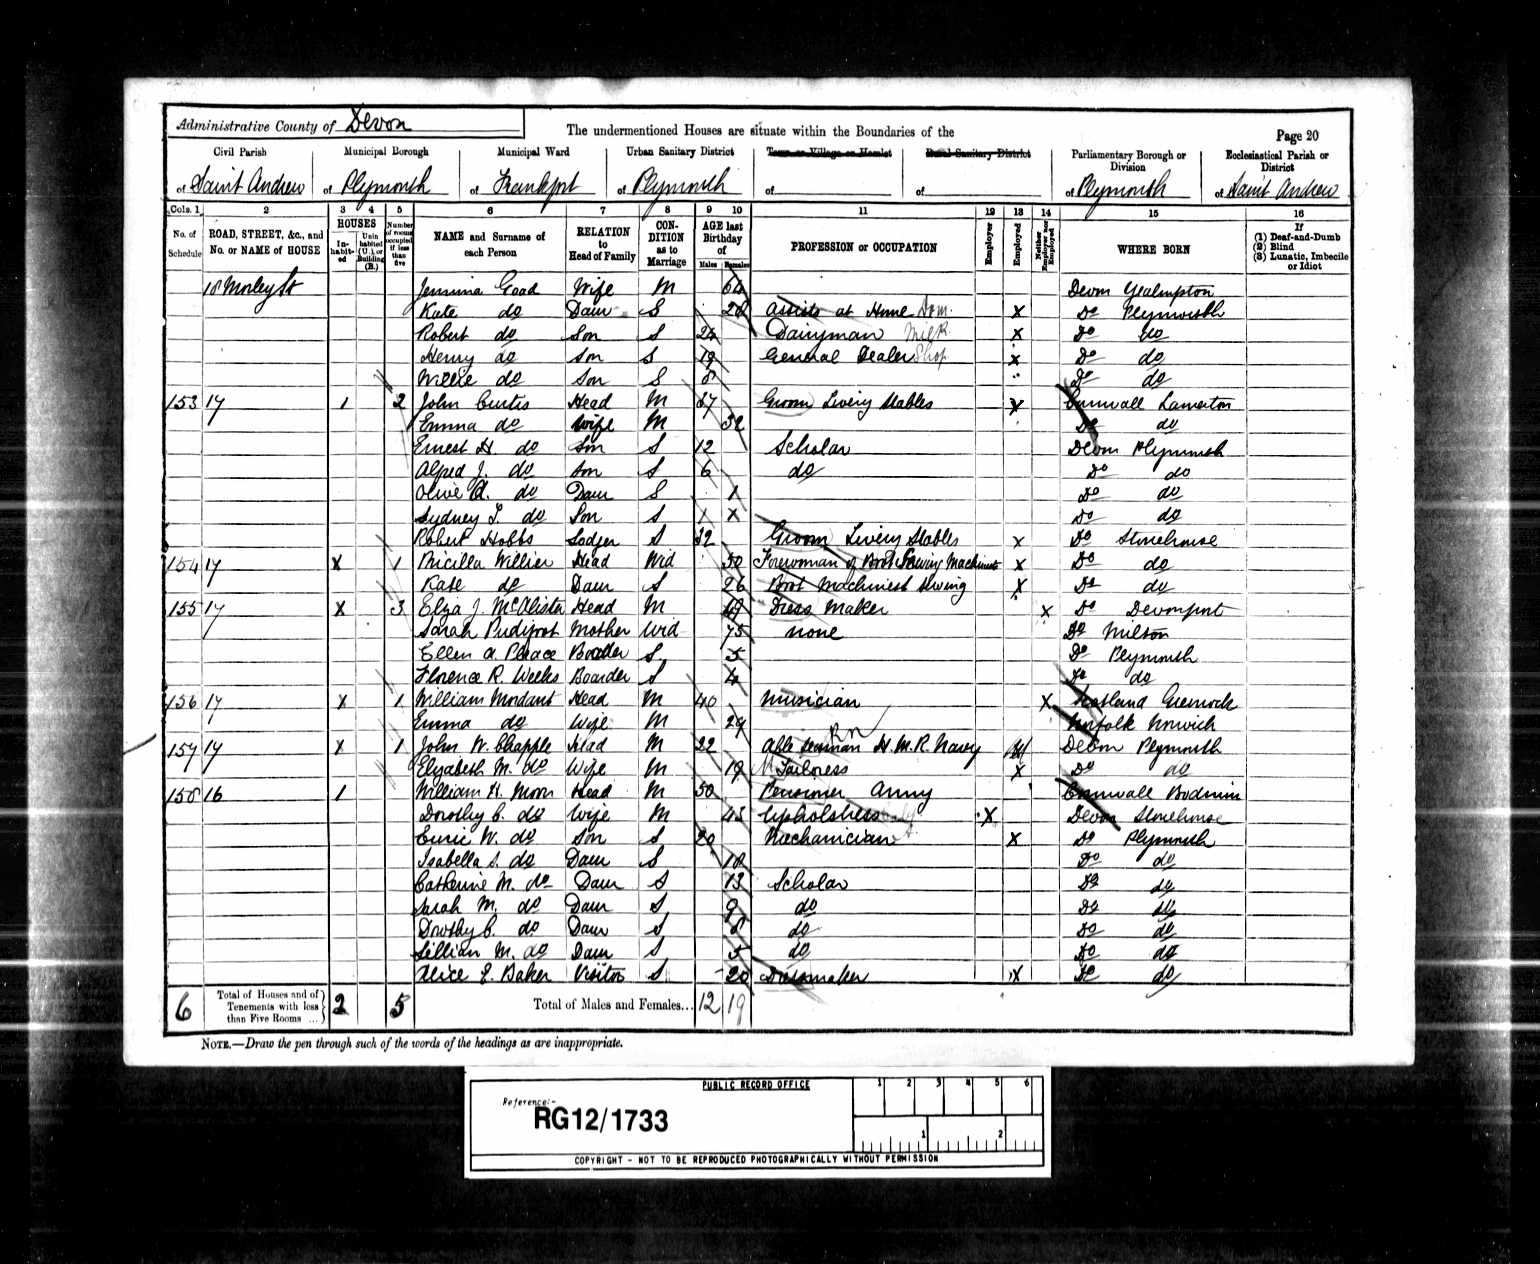 Administrative County of Devon
The undermentioned Houses are situate within the Boundaries of the
Page 20
Civil Parish Municipal Borough Municipal Ward Urban Sanitary District Town or Village or Hamlet Rural Sanitary District Parliamentary Borough or Division Ecclesiastical Parish or District
of Saint Andrew of Plymouth of Frankfort of Plymouth of of of Plymouth of Saint Andrew
Cols. 1 2 3 4 5 6 7 8 9 10 11 12 13 14 15 16
No. of Schedule ROAD, STREET, &c., and No. or NAME of HOUSE HOUSES Inhabited Uninhabited (U.), or Building (B.) Number of rooms occupied if less than five NAME and Surname of each Person RELATION to Head of Family CONDITION as to Marriage AGE last Birthday of Males Females PROFESSION or OCCUPATION Employer Employed Neither Employer nor Employed WHERE BORN If (1) Deaf-and-Dumb (2) Blind (3) Lunatic, Imbecile or Idiot
18 Morley St Jemima Goad Wife M 64 Devon Yealmpton
Kate do Daur S 28 Assists at Home Dom. X Do Plymouth
Robert do Son S 24 Dairyman Milk X Do do
Henry do Son S 19 General Dealer Shop X Do do
Willie do Son S 8 Do do
153 17 1 2 John Curtis Head M 37 Groom Livery Stables X Cornwall Lamerton
Emma do Wife M 32 Do do
Ernest H. do Son S 12 Scholar Devon Plymouth
Alfred J. do Son S 6 do Do do
Olive A. do Daur S 1 Do do
Sydney T. do Son S 1 X Do do
Robert Hobbs Lodger S 32 Groom Livery Stables X Do Stonehouse
154 17 X 1 Pricilla Willier Head Wid 50 Forewoman of Boot Sewing Machinist X Do do
Kate do Daur S 26 Boot Machinist Sewing X Do do
155 17 X 3 Elza J. McAlister Head M Dress Maker X Do Devonport
Sarah Mother Wid 75 none Do Milton
Ellen A. Boarder S 5 Do Plymouth
Florence R. Weeks Boarder S 4 Do do
156 17 X 1 William Mordant Head M 40 Musician X Scotland Greenock
Emma do Wife M 29 Norfolk Norwich
157 17 X 1 John W. Chapple Head M 22 Able Seaman H.M.R. Navy RN Devon Plymouth
Elyabeth M. do Wife M 19 Tailoress X Do do
158 16 1 William H. Moon Head M 50 Pensioner Army Cornwall Bodmin
Dorothy C. do Wife M 43 Upholstress X Devon Stonehouse
W. do Son S 20 Mechanician X Do Plymouth
Isabella S. do Daur S 18 Do do
Catherine M. do Daur S 13 Scholar Do do
Sarah M. do Daur S 9 do Do do
Dorothy C. do Daur S 8 do Do do
Lillian M. do Daur S 5 do Do do
Alice E. Baker Visitor S 20 Dressmaker X Do do
6 Total of Houses and of Tenements with less than Five Rooms ... 2 5 Total of Males and Females... 12 19
NOTE.—Draw the pen through such of the words of the headings as are inappropriate.
PUBLIC RECORD OFFICE
1 2 3 4 5 6
Reference:-
RG12/1733
1 2
COPYRIGHT - NOT TO BE REPRODUCED PHOTOGRAPHICALLY WITHOUT PERMISSION